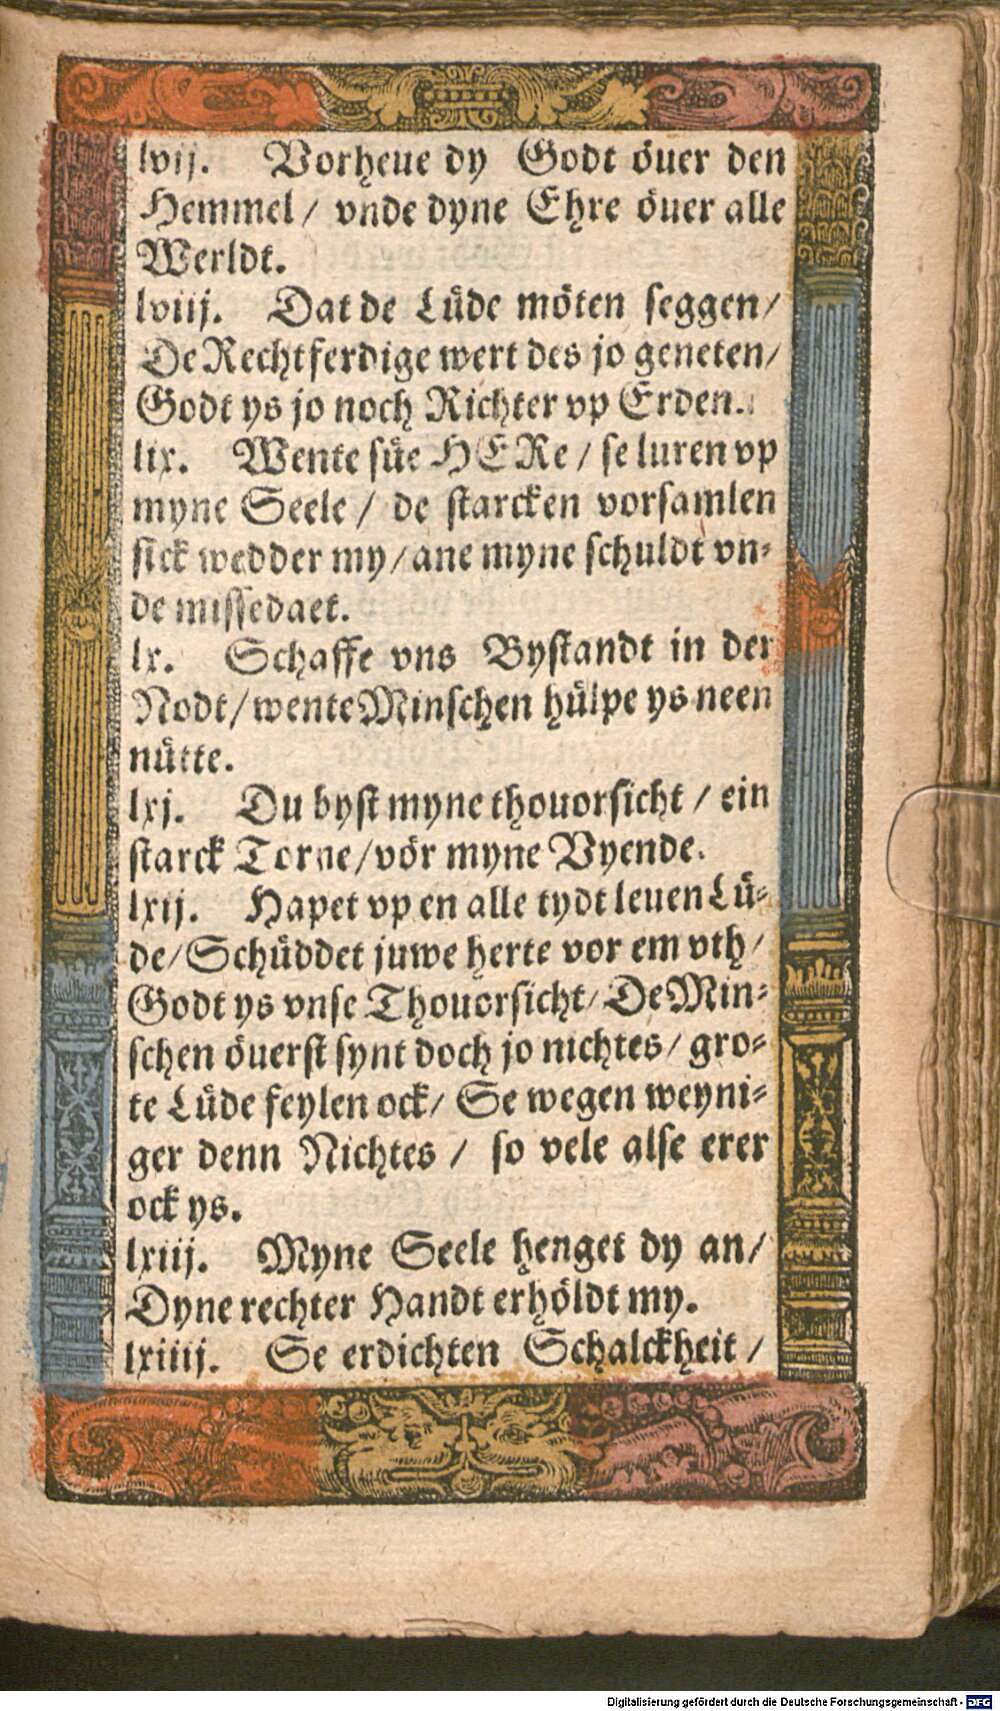 lvij. Vorheue dy Godt öuer den
Hemmel / vnde dyne Ehre öuer alle
Werldt.
lviij. Dat de Lüde möten seggen /
De Rechtferdige wert des jo geneten /
Godt ys jo noch Richter vp Erden.
lix. Wente süe HERe / se luren vp
myne Seele / de starcken vorsamlen
sick wedder my / ane myne schuldt vn-
de missedaet.
lx. Schaffe vns Bystandt in der
Nodt / wente Minschen hülpe ys neen
nütte.
lxj. Du byst myne thouorsicht / ein
starck Torne / vör myne Vyende.
lxij. Hapet vp en alle tydt leuen Lü-
de / Schüddet juwe herte vor em vth /
Godt ys vnse Thouorsicht / De Min-
schen öuerst synt doch jo nichtes / gro-
te Lüde feylen ock / Se wegen weyni-
ger denn Nichtes / so vele alse erer
ock ys.
lxiij. Myne Seele henget dy an /
Dyne rechter Handt erhöldt my.
lxiiij. Se erdichten Schalckheit /
Digitalisierung gefördert durch die Deutsche Forschungsgemeinschaft - DFG